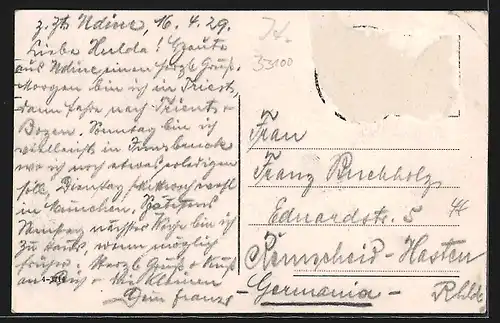 z. Zt. Udine, 16. 4. 29.
Liebe Hulda! Heute
aus Udine einen herzl. Gruß.
Morgen bin ich in Triest,
dann fahre nach Trient +
Bozen. Sonntag bin ich
vielleicht in Innsbruck
wo ich noch etwas erledigen
soll, Dienstag Mittwoch
in München. Spätestens
Samstag nächster Woche bin ich
zu Haus, wenn möglich
früher. Herzl. Gruß + Kuß
an Dich + die Kleinen
Dein Franz
It.
33100
Frau
Franz Buchholz
Eduardstr. 5
Remscheid-Hasten
Germania
Rhld.